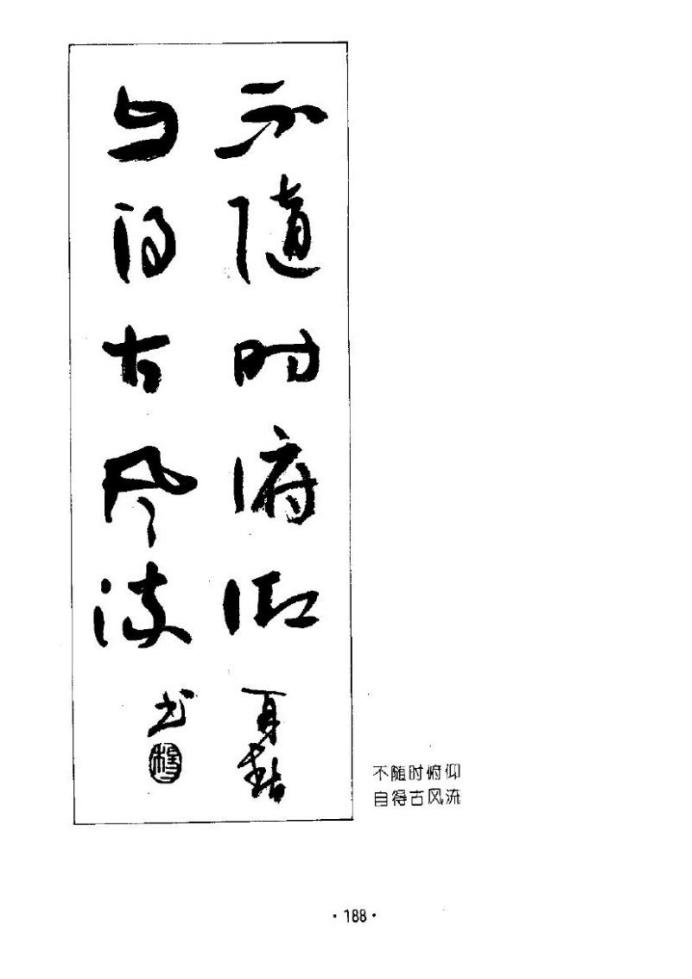 不随时俯仰
自得古风流
书
不随时俯仰
自得古风流
·188·